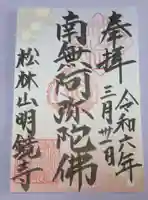 奉拝
令和六年
三月卅一日
南無阿弥陀佛
松林山明鏡寺